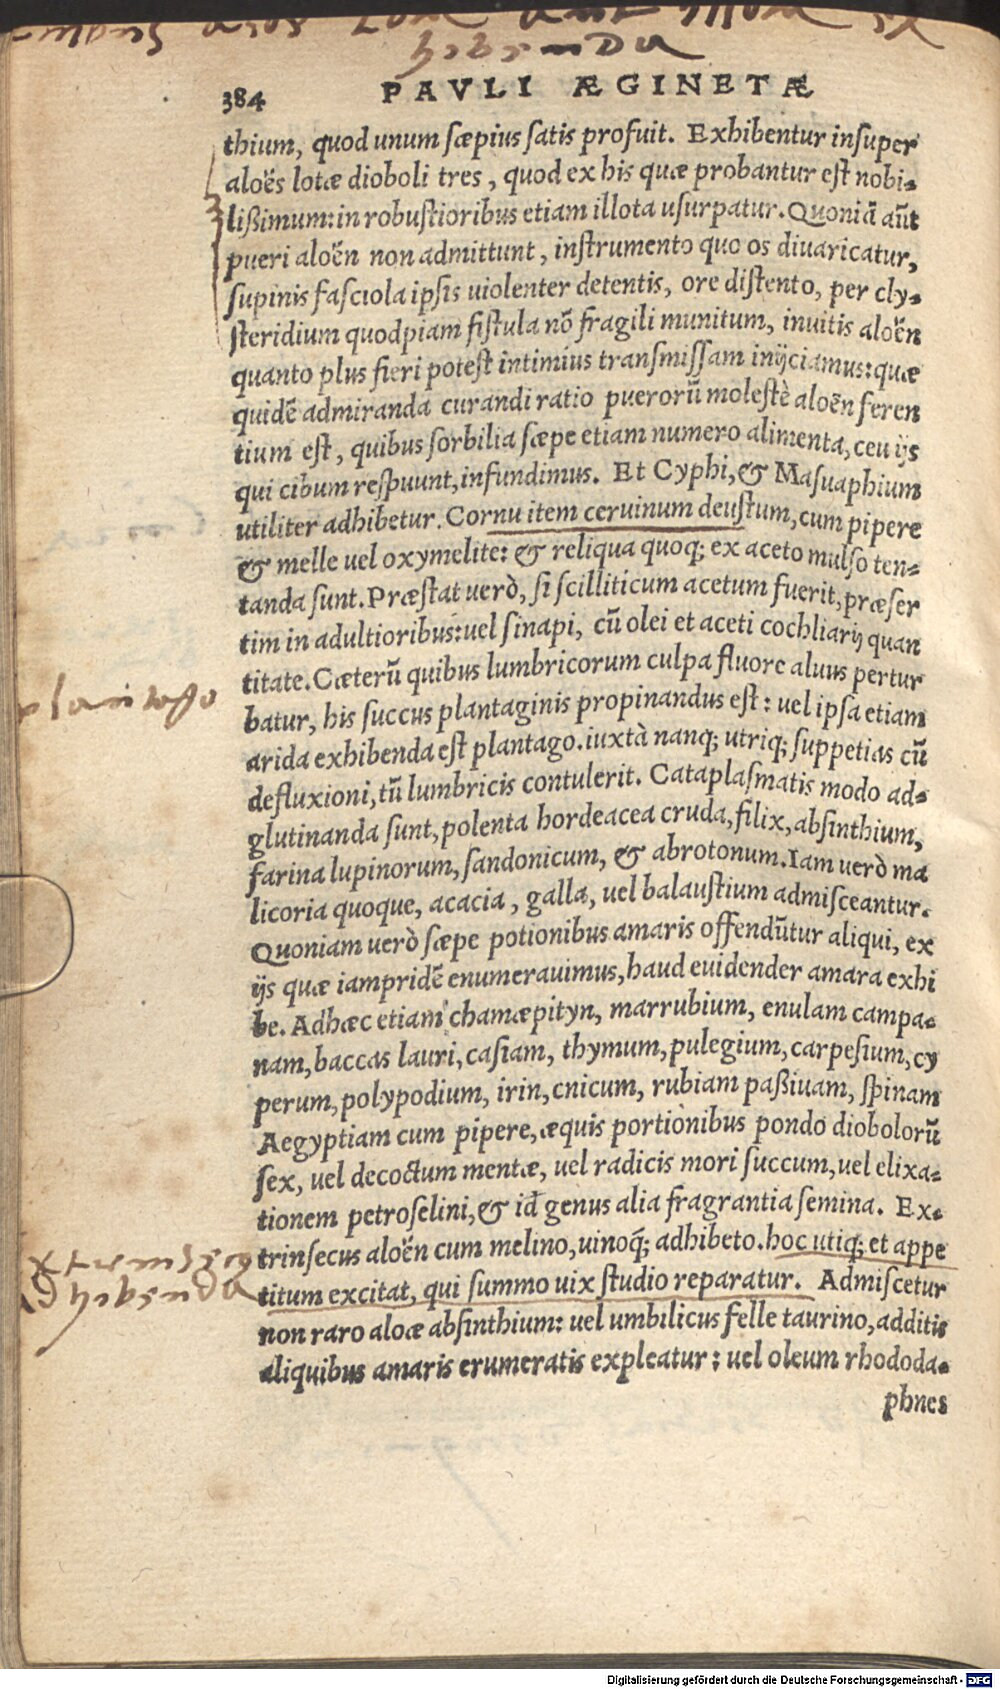 hibenda
384 PAVLI ÆGINETÆ
thium, quod unum sæpius satis profuit. Exhibentur insuper
aloës lotæ dioboli tres, quod ex his quæ probantur est nobi-
lißimum: in robustioribus etiam illota usurpatur. Quoniã aũt
pueri aloën non admittunt, instrumento quo os diuaricatur,
supinis fasciola ipsis uiolenter detentis, ore distento, per cly-
steridium quodpiam fistula nõ fragili munitum, inuitis aloën
quanto plus fieri potest intimius transmissam inijciamus: quæ
quidẽ admiranda curandi ratio puerorũ molestè aloën feren
tium est, quibus sorbilia sæpe etiam numero alimenta, ceu ijs
qui cibum respuunt, infundimus. Et Cyphi, & Masuaphium
utiliter adhibetur. Cornu item ceruinum deustum, cum pipere
& melle uel oxymelite: & reliqua quoq; ex aceto mulso ten-
tanda sunt. Præstat uerò, si scilliticum acetum fuerit, præser
tim in adultioribus: uel sinapi, cũ olei et aceti cochliarij quan
titate. Cæterũ quibus lumbricorum culpa fluore aluus pertur
plantago
batur, his succus plantaginis propinandus est: uel ipsa etiam
arida exhibenda est plantago. iuxtà nanq; utriq; suppetias cũ
defluxioni, tũ lumbricis contulerit. Cataplasmatis modo ad-
glutinanda sunt, polenta hordeacea cruda, filix, absinthium,
farina lupinorum, sandonicum, & abrotonum. Iam uerò ma
licoria quoque, acacia, galla, uel balaustium admisceantur.
Quoniam uerò sæpe potionibus amaris offendũtur aliqui, ex
ijs quæ iampridẽ enumerauimus, haud euidender amara exhi
be. Adhæc etiam chamæpityn, marrubium, enulam campa-
nam, baccas lauri, casiam, thymum, pulegium, carpesium, cy
perum, polypodium, irin, cnicum, rubiam paßiuam, spinam
Aegyptiam cum pipere, æquis portionibus pondo diobolorũ
sex, uel decoctum mentæ, uel radicis mori succum, uel elixa-
tionem petroselini, & id genus alia fragrantia semina. Ex-
trinsecus aloën cum melino, uinoq; adhibeto. hoc utiq; et appe
titum excitat, qui summo uix studio reparatur. Admiscetur
non raro aloæ absinthium: uel umbilicus felle taurino, additis
aliquibus amaris erumeratis expleatur: uel oleum rhododa-
phnes
Digitalisierung gefördert durch die Deutsche Forschungsgemeinschaft - DFG